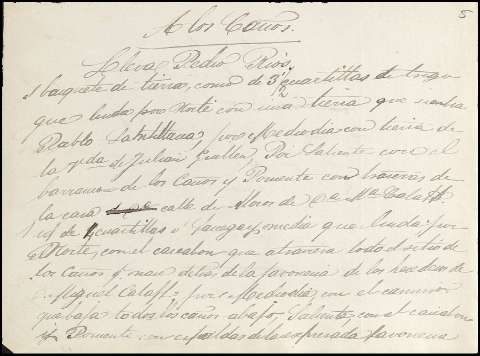 5
A los Caños.
Lleva Pedro Rios,
el baquete de tierra, como de 3½ cuartillas de trigo
que linda por Norte con una tierra que siembra
Pablo por Mediodia con tierra de
la vda de Julian Guallen, Por Saliente con el
barranco de los Caños y Poniente con traseras de
la casa calle de Moros de Da Ma Calaft.
id de 4 cuartillas o fanega y media que linda por
Norte, con el cascabon que atraviesa todo el sitio de
los Caños y mas detrás de la favoneria de los herederos de
Miguel Calaft, por Mediodia, con el camino
que baja todo los caños abajo, Saliente, con el cascabon
y Poniente con espaldas de la expresada favoneria